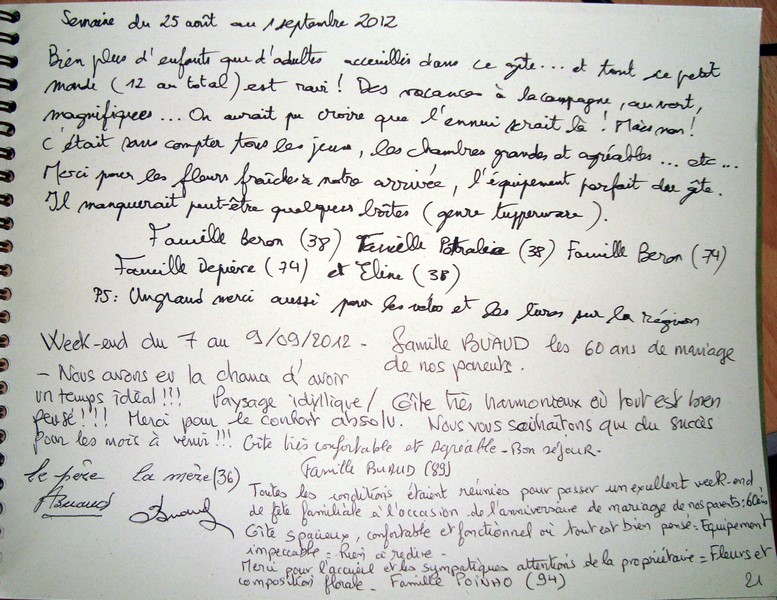 Semaine du 25 août au 1 septembre 2012
Bien plus d'enfants que d'adultes acceuillis dans ce gîte... et tout ce petit
monde (12 au total) est ravi ! Des vacances à la campagne, au vert,
magnifiques... On aurait pu croire que l'ennui serait là ! Mais non !
C'était sans compter tous les jeux, les chambres grandes et agréables... etc...
Merci pour les fleurs fraîches à notre arrivée, l'équipement parfait du gîte.
Il manquerait peut-être quelques boîtes (genre tupperware).
Famille Beron (38) Famille (38) Famille Beron (74)
Famille Depierre (74) et Eline (38)
PS: Un grand merci aussi pour les vélos et les livres sur la région
Week-end du 7 au 9/09/2012 - famille BUAUD les 60 ans de mariage
de nos parents.
- Nous avons eu la chance d'avoir
un temps idéal !!! Paysage idyllique / Gîte très harmonieux où tout est bien
pensé !!!! Merci pour le confort absolu. Nous vous souhaitons que du succès
pour les mois à venir !!! Gite très confortable et agréable - Bon séjour -
le père la mère (36) Famille BUAUD (89)
ABuaud Buaud
Toutes les conditions étaient réunies pour passer un excellent week-end
de fête familiale à l'occasion de l'anniversaire de mariage de nos parents: 60 ans
Gîte spacieux, confortable et fonctionnel où tout est bien pensé = Equipement
impeccable = Rien à redire -
Merci pour l'accueil et les sympatiques attentions de la propriétaire = Fleurs et
composition florale - Famille POINHO (94)
21